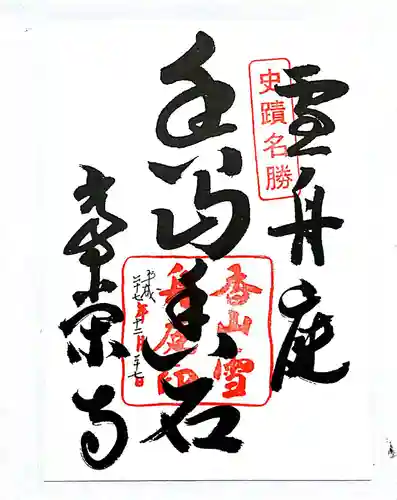 史蹟名勝
雪舟庭
香山雪
舟庭印
平成
二十七年十二月二十七日
常栄寺